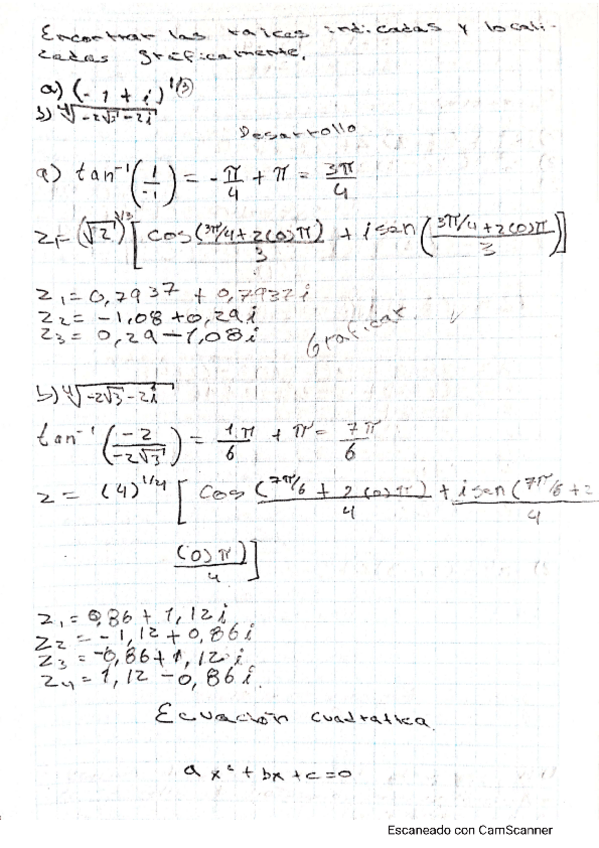 Encontrar las raíces indicadas y locali-
cadas gráficamente.
a) (-1 + i)^1/3
b) ∜-2√3 - 2i
Desarrollo
a) tan⁻¹(1/-1) = -π/4 + π = 3π/4
z₁= (√2)^1/3 [cos(3π/4+2(0)π)/3 + i sen(3π/4+2(0)π)/3]
z₁= 0,7937 + 0,7937i
z₂= -1,08+0,29i
z₃= 0,29-1,08i
Graficar
b) ∜-2√3 - 2i
tan⁻¹(-2/-2√3) = 1π/6 + π = 7π/6
z = (4)^1/4 [cos(7π/6 + 2(0)π)/4 + i sen(7π/6 + 2
(0)π)/4]
z₁= 0,86 + 1,12i
z₂= -1,12+0,86i
z₃= -0,86+1,12i
z₄= 1,12 -0,86i.
Ecuación cuadratica.
ax² + bx + c = 0
Escaneado con CamScanner